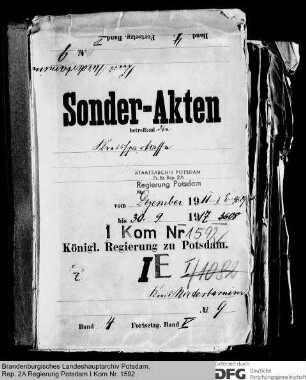 Band 4 Fortsetzg. Band
№ 9
Kreis Niederbarnim
Sonder-Akten
betreffend die
Kreissparkasse
STAATSARCHIV POTSDAM
Pr. Br. Rep. 2A
Regierung Potsdam
vom Dezember 1911
bis 30. 9 1917
I Kom Nr 1592
Königl. Regierung zu Potsdam.
I E
Kreis Niederbarnim
№ 9
Band 4 Fortsetzg. Band
Brandenburgisches Landeshauptarchiv Potsdam,
Rep. 2A Regierung Potsdam I Kom Nr. 1592
Gefördert durch
DFG Deutsche
Forschungsgemeinschaft